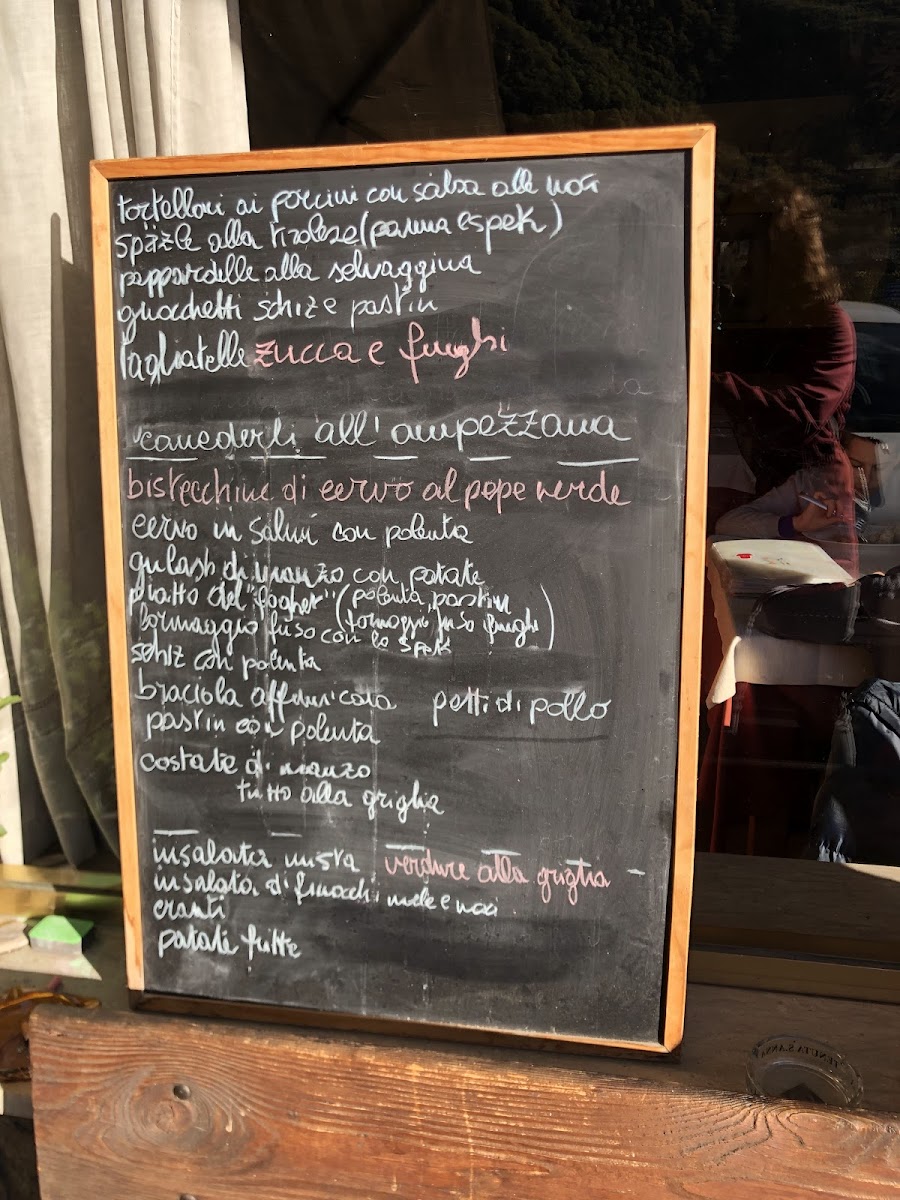 tortelloni ai porcini con salsa alle noci
späzle alla tirolese (panna e speck)
pappardelle alla selvaggina
gnocchetti schiz e pastin
tagliatelle zucca e funghi
canederli all'ampezzana
bistecchine di cervo al pepe verde
cervo in salmì con polenta
gulash di manzo con patate
piatto del "fogher" (polenta, pastin
formaggio fuso funghi)
formaggio fuso con lo speck
schiz con polenta
braciola affumicata petti di pollo
pastin con polenta
costate di manzo
tutto alla griglia
insalata mista verdure alla griglia
insalata di finocchi mele e noci
crauti
patate fritte
TENUTA S.ANNA